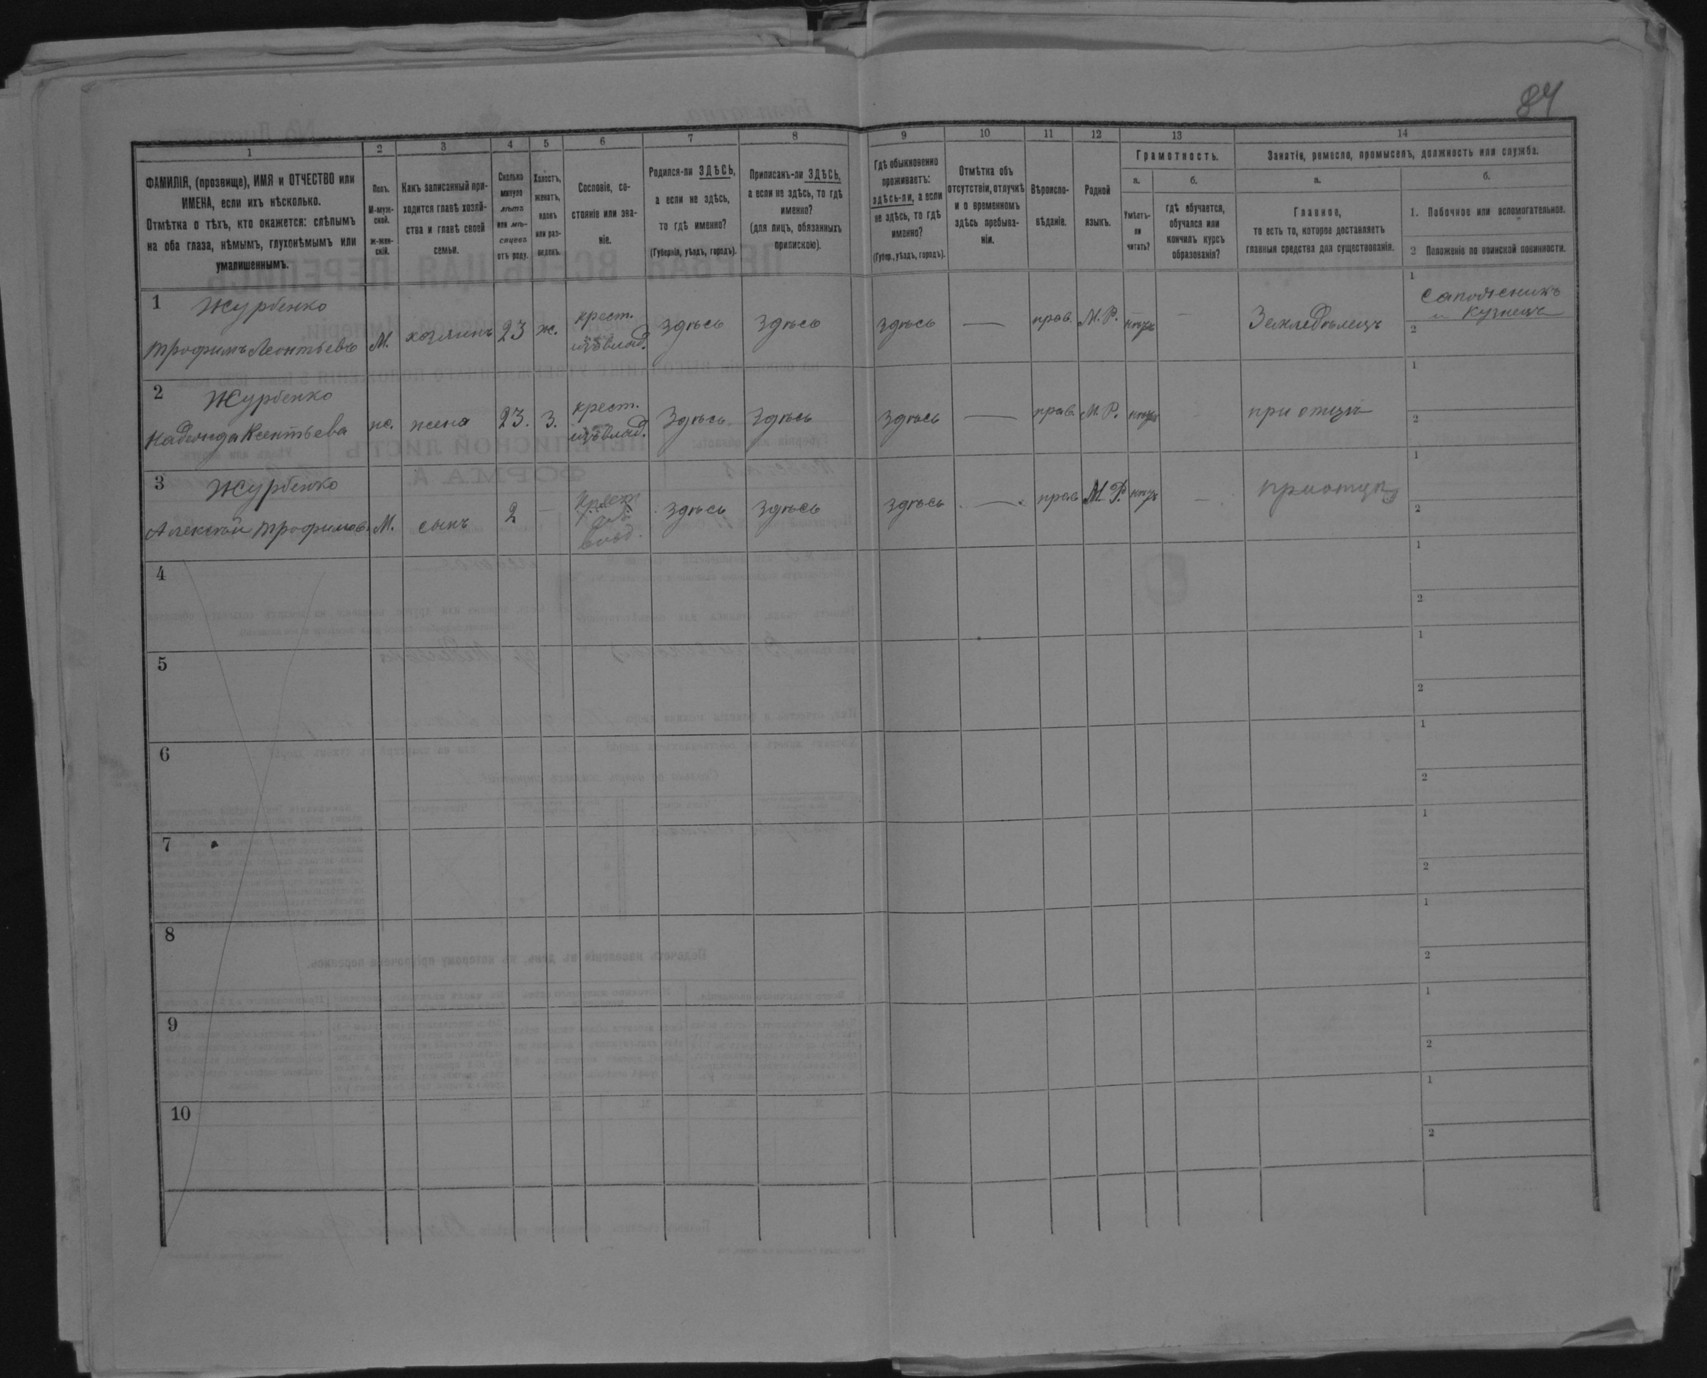 84
1 2 3 4 5 6 7 8 9 10 11 12 13 14
ФАМИЛІЯ, (прозвище), ИМЯ и ОТЧЕСТВО или
ИМЕНА, если ихъ нѣсколько.
Отмѣтка о тѣхъ, кто окажется: слѣпымъ
на оба глаза, нѣмымъ, глухонѣмымъ или
умалишеннымъ.
Полъ.
М-муж-
ской.
ж-жен-
скій.
Какъ записанный при-
ходится главѣ хозяй-
ства и главѣ своей
семьи.
Сколько
минуло
лѣтъ
или мѣ-
сяцевъ
отъ роду.
Холостъ,
женатъ,
вдовъ
или раз-
веденъ.
Сословіе, со-
стояніе или зва-
ніе.
Родился-ли ЗДѢСЬ,
а если не здѣсь,
то гдѣ именно?
(Губернія, уѣздъ, городъ).
Приписанъ-ли ЗДѢСЬ,
а если не здѣсь, то гдѣ
именно?
(для лицъ, обязанныхъ
припискою).
Гдѣ обыкновенно
проживаетъ:
здѣсь-ли, а если
не здѣсь, то гдѣ
именно?
(Губер., уѣздъ, городъ).
Отмѣтка объ
отсутствіи, отлучкѣ
и о временномъ
здѣсь пребыва-
ніи.
Вѣроиспо-
вѣданіе.
Родной
языкъ.
Грамотность.
а.
Умѣетъ-
ли
читать?
б.
гдѣ обучается,
обучался или
кончилъ курсъ
образованія?
Занятіе, ремесло, промыселъ, должность или служба.
а.
Главное,
то есть то, которое доставляетъ
главныя средства для существованія.
б.
1. Побочное или вспомогательное.
2 Положеніе по воинской повинности.
1 Журбенко
Трофимъ Леонтьевъ М. хозяинъ 23 ж. крест. здѣсь здѣсь здѣсь — прав. М. Р. — Земледѣлецъ
1 Сапожникъ
и Кузнецъ
2
2 Журбенко
Надежда ж. жена 23. З. крест. здѣсь здѣсь здѣсь — прав. М. Р. при отцѣ
1
2
3 Журбенко
Алексѣй Трофимов. М. сынъ 2 — крест. здѣсь здѣсь здѣсь — прав. М. Р. — при отцѣ
1
2
4
1
2
5
1
2
6
1
2
7
1
2
8
1
2
9
1
2
10
1
2